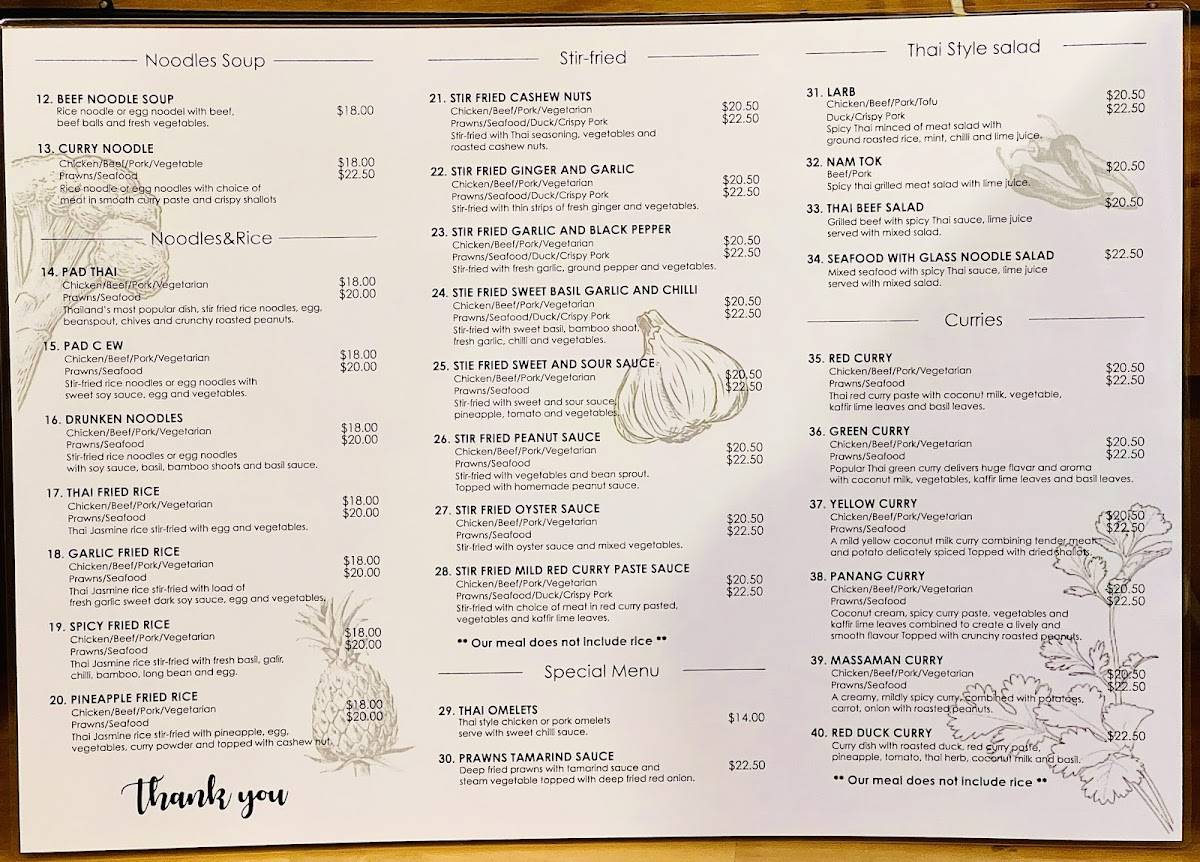 Noodles Soup
12. BEEF NOODLE SOUP
Rice noodle or egg noodel with beef, $18.00
beef balls and fresh vegetables.
13. CURRY NOODLE
Chicken/Beef/Pork/Vegetable $18.00
Prawns/Seafood $22.50
Rice noodle or egg noodles with choice of
meat in smooth curry paste and crispy shallots
Noodles&Rice
14. PAD THAI
Chicken/Beef/Pork/Vegetarian $18.00
Prawns/Seafood $20.00
Thailand's most popular dish, stir fried rice noodles, egg,
beanspout, chives and crunchy roasted peanuts.
15. PAD C EW
Chicken/Beef/Pork/Vegetarian $18.00
Prawns/Seafood $20.00
Stir-fried rice noodles or egg noodles with
sweet soy sauce, egg and vegetables.
16. DRUNKEN NOODLES
Chicken/Beef/Pork/Vegetarian $18.00
Prawns/Seafood $20.00
Stir-fried rice noodles or egg noodles
with soy sauce, basil, bamboo shoots and basil sauce.
17. THAI FRIED RICE
Chicken/Beef/Pork/Vegetarian $18.00
Prawns/Seafood $20.00
Thai Jasmine rice stir-fried with egg and vegetables.
18. GARLIC FRIED RICE
Chicken/Beef/Pork/Vegetarian $18.00
Prawns/Seafood $20.00
Thai Jasmine rice stir-fried with load of
fresh garlic sweet dark soy sauce, egg and vegetables.
19. SPICY FRIED RICE
Chicken/Beef/Pork/Vegetarian $18.00
Prawns/Seafood $20.00
Thai Jasmine rice stir-fried with fresh basil, galir,
chilli, bamboo, long bean and egg.
20. PINEAPPLE FRIED RICE
Chicken/Beef/Pork/Vegetarian $18.00
Prawns/Seafood $20.00
Thai Jasmine rice stir-fried with pineapple, egg,
vegetables, curry powder and topped with cashew nut.
Thank you
Stir-fried
21. STIR FRIED CASHEW NUTS
Chicken/Beef/Pork/Vegetarian $20.50
Prawns/Seafood/Duck/Crispy Pork $22.50
Stir-fried with Thai seasoning, vegetables and
roasted cashew nuts.
22. STIR FRIED GINGER AND GARLIC
Chicken/Beef/Pork/Vegetarian $20.50
Prawns/Seafood/Duck/Crispy Pork $22.50
Stir-fried with thin strips of fresh ginger and vegetables.
23. STIR FRIED GARLIC AND BLACK PEPPER
Chicken/Beef/Pork/Vegetarian $20.50
Prawns/Seafood/Duck/Crispy Pork $22.50
Stir-fried with fresh garlic, ground pepper and vegetables.
24. STIE FRIED SWEET BASIL GARLIC AND CHILLI
Chicken/Beef/Pork/Vegetarian $20.50
Prawns/Seafood/Duck/Crispy Pork $22.50
Stir-fried with sweet basil, bamboo shoot,
fresh garlic, chilli and vegetables.
25. STIE FRIED SWEET AND SOUR SAUCE
Chicken/Beef/Pork/Vegetarian $20.50
Prawns/Seafood $22.50
Stir-fried with sweet and sour sauce,
pineapple, tomato and vegetables.
26. STIR FRIED PEANUT SAUCE
Chicken/Beef/Pork/Vegetarian $20.50
Prawns/Seafood $22.50
Stir-fried with vegetables and bean sprout.
Topped with homemade peanut sauce.
27. STIR FRIED OYSTER SAUCE
Chicken/Beef/Pork/Vegetarian $20.50
Prawns/Seafood $22.50
Stir-fried with oyster sauce and mixed vegetables.
28. STIR FRIED MILD RED CURRY PASTE SAUCE
Chicken/Beef/Pork/Vegetarian $20.50
Prawns/Seafood/Duck/Crispy Pork $22.50
Stir-fried with choice of meat in red curry pasted,
vegetables and kaffir lime leaves.
** Our meal does not include rice **
Special Menu
29. THAI OMELETS
Thai style chicken or pork omelets $14.00
serve with sweet chili sauce.
30. PRAWNS TAMARIND SAUCE
Deep fried prawns with tamarind sauce and $22.50
steam vegetable topped with deep fried red onion.
Thai Style salad
31. LARB
Chicken/Beef/Pork/Tofu $20.50
Duck/Crispy Pork $22.50
Spicy Thai minced of meat salad with
ground roasted rice, mint, chilli and lime juice.
32. NAM TOK
Beef/Pork $20.50
Spicy thai grilled meat salad with lime juice.
33. THAI BEEF SALAD $20.50
Grilled beef with spicy Thai sauce, lime juice
served with mixed salad.
34. SEAFOOD WITH GLASS NOODLE SALAD $22.50
Mixed seafood with spicy Thai sauce, lime juice
served with mixed salad.
Curries
35. RED CURRY
Chicken/Beef/Pork/Vegetarian $20.50
Prawns/Seafood $22.50
Thai red curry paste with coconut milk, vegetable,
kaffir lime leaves and basil leaves.
36. GREEN CURRY
Chicken/Beef/Pork/Vegetarian $20.50
Prawns/Seafood $22.50
Popular Thai green curry delivers huge flavar and aroma
with coconut milk, vegetables, kaffir lime leaves and basil leaves.
37. YELLOW CURRY
Chicken/Beef/Pork/Vegetarian $20.50
Prawns/Seafood $22.50
A mild yellow coconut milk curry combining tender meat
and potato delicately spiced Topped with dried shallots.
38. PANANG CURRY
Chicken/Beef/Pork/Vegetarian $20.50
Prawns/Seafood $22.50
Coconut cream, spicy curry paste, vegetables and
kaffir lime leaves combined to create a lively and
smooth flavour Topped with crunchy roasted peanuts.
39. MASSAMAN CURRY
Chicken/Beef/Pork/Vegetarian $20.50
Prawns/Seafood $22.50
A creamy, mildly spicy curry, combined with potatoes,
carrot, onion with roasted peanuts.
40. RED DUCK CURRY $22.50
Curry dish with roasted duck, red curry paste,
pineapple, tomato, thai herb, coconut milk and basil.
** Our meal does not include rice **